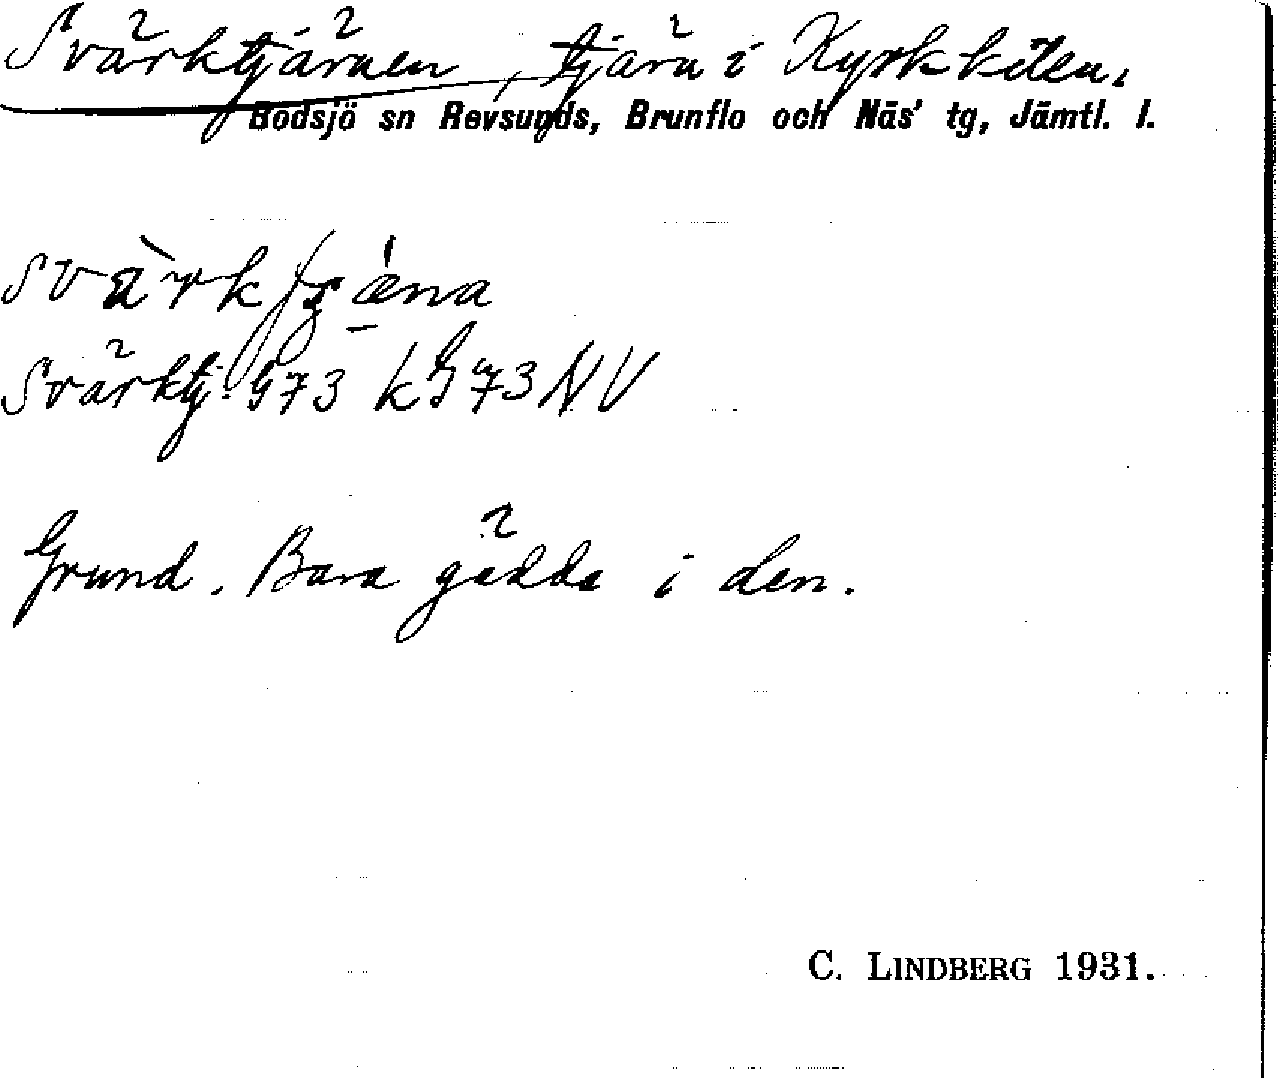 Svärktjärnen, tjärn i Kyrkbiten.
Bodsjö sn Revsunds, Brunflo och Näs' tg, Jämtl. l.
Svärktj. G73 kG73NV
Grund. Bara gädda i den.
C. LINDBERG 1931.